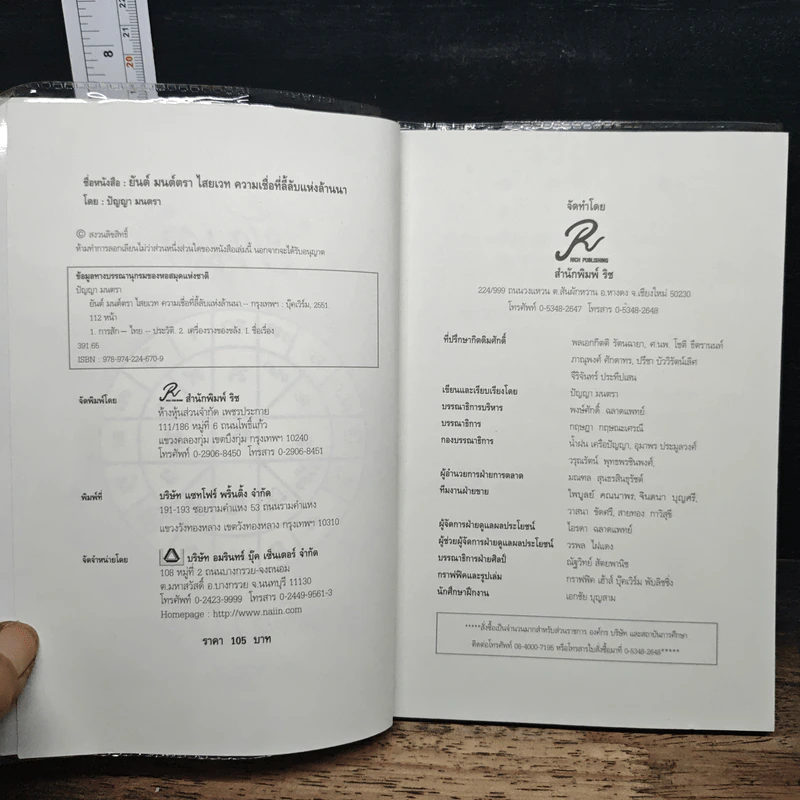 8
20
21
22
ชื่อหนังสือ : ยันต์ มนต์ตรา ไสยเวท ความเชื่อที่ลี้ลับแห่งล้านนา
โดย : ปัญญา มนตรา
© สงวนลิขสิทธิ์
ห้ามทำการลอกเลียนไม่ว่าส่วนหนึ่งส่วนใดของหนังสือเล่มนี้ นอกจากจะได้รับอนุญาต
ข้อมูลทางบรรณานุกรมของหอสมุดแห่งชาติ
ปัญญา มนตรา
ยันต์ มนต์ตรา ไสยเวท ความเชื่อที่ลี้ลับแห่งล้านนา.-- กรุงเทพฯ : บุ๊คเวิร์ม, 2551.
112 หน้า
1. การสัก-- ไทย -- ประวัติ. 2. เครื่องรางของขลัง. I. ชื่อเรื่อง
391.65
ISBN : 978-974-224-670-9
จัดพิมพ์โดย
RICH PUBLISHING
สำนักพิมพ์ ริช
ห้างหุ้นส่วนจำกัด เพชรประกาย
111/186 หมู่ที่ 6 ถนนโพธิ์แก้ว
แขวงคลองกุ่ม เขตบึงกุ่ม กรุงเทพฯ 10240
โทรศัพท์ 0-2906-8450 โทรสาร 0-2906-8451
พิมพ์ที่
บริษัท แซทโฟร์ พริ้นติ้ง จำกัด
191-193 ซอยรามคำแหง 53 ถนนรามคำแหง
แขวงวังทองหลาง เขตวังทองหลาง กรุงเทพฯ 10310
จัดจำหน่ายโดย
บริษัท อมรินทร์ บุ๊ค เซ็นเตอร์ จำกัด
108 หมู่ที่ 2 ถนนบางกรวย-จงถนอม
ต.มหาสวัสดิ์ อ.บางกรวย จ.นนทบุรี 11130
โทรศัพท์ 0-2423-9999 โทรสาร 0-2449-9561-3
Homepage : http://www.naiin.com
ราคา 105 บาท
จัดทำโดย
RICH PUBLISHING
สำนักพิมพ์ ริช
224/999 ถนนวงแหวน ต.สันผักหวาน อ.หางดง จ.เชียงใหม่ 50230
โทรศัพท์ 0-5348-2647 โทรสาร 0-5348-2648
ที่ปรึกษากิตติมศักดิ์ พลเอกกิตติ รัตนฉายา, ศ.นพ. โชติ ธีตรานนท์
ภาณุพงศ์ ศักดาทร, ปรีชา บัววิรัตน์เลิศ
จีริจันทร์ ประทีปเสน
เขียนและเรียบเรียงโดย ปัญญา มนตรา
บรรณาธิการบริหาร พงษ์ศักดิ์ ฉลาดแพทย์
บรรณาธิการ กฤษฎา กฤษณะเศรณี
กองบรรณาธิการ น้ำฝน เครือปัญญา, อุมาพร ประมูลวงศ์
วรุณรัตน์ พุทธพรชินพงศ์,
ผู้อำนวยการฝ่ายการตลาด มณฑล สุนธรสินธุรัชต์
ทีมงานฝ่ายขาย ไพบูลย์ คณนาพร, จินตนา บุญศรี,
วาสนา รัตศรี, สายทอง กาวิสุชี
ผู้จัดการฝ่ายดูแลผลประโยชน์ ไอรดา ฉลาดแพทย์
ผู้ช่วยผู้จัดการฝ่ายดูแลผลประโยชน์ วรพล ไฝแดง
บรรณาธิการฝ่ายศิลป์ ณัฐวิทย์ สัตยพานิช
กราฟฟิคและรูปเล่ม กราฟฟิค เฮ้าส์ บุ๊คเวิร์ม พับลิชชิ่ง
นักศึกษาฝึกงาน เอกชัย บุญสาม
*****สั่งซื้อเป็นจำนวนมากสำหรับส่วนราชการ องค์กร บริษัท และสถาบันการศึกษา
ติดต่อโทรศัพท์ 08-4000-7195 หรือโทรสารใบสั่งซื้อมาที่ 0-5348-2648*****